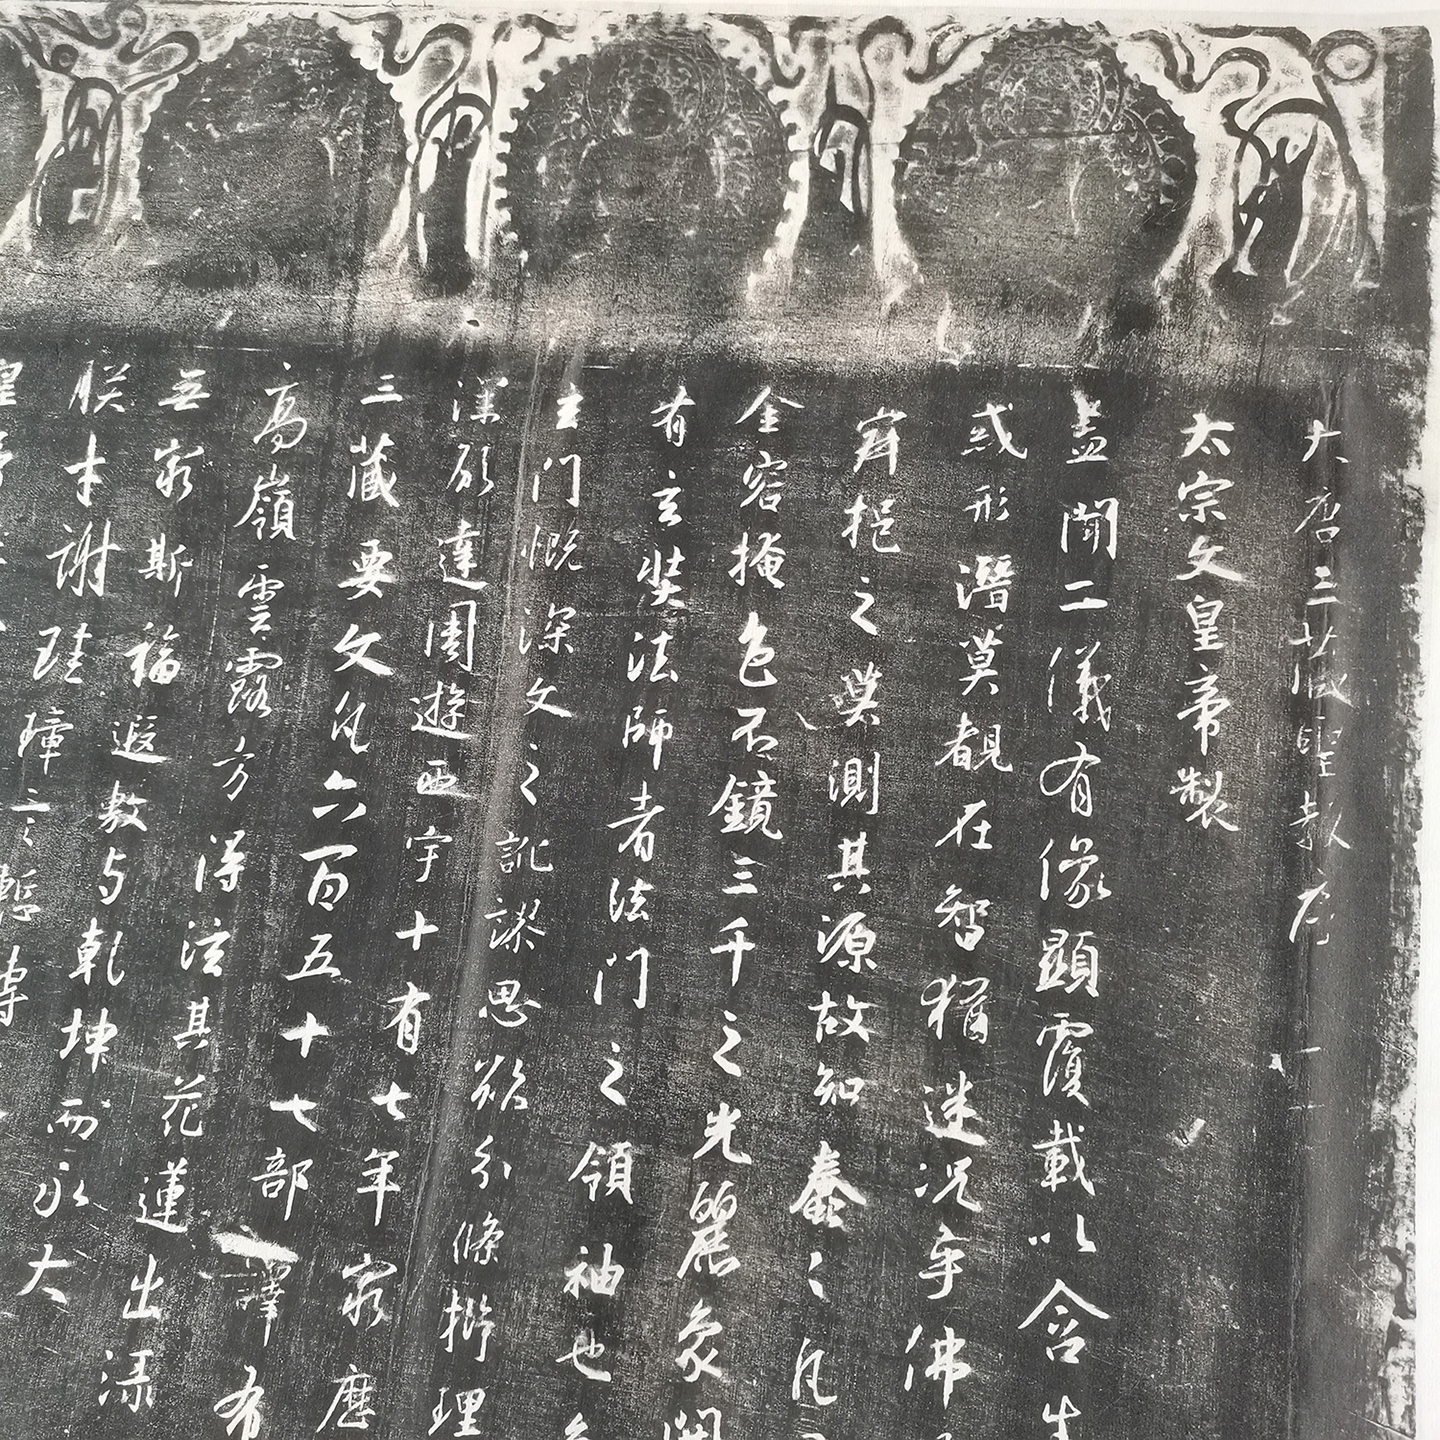 大唐三藏聖教序
太宗文皇帝製
盖聞二儀有像顯覆載以含生
或形潛莫覩在智猶迷況乎佛
岸挹之莫測其源故知蠢蠢凡
金容掩色不鏡三千之光麗象開
有玄奘法師者法門之領袖也
玄門慨深文之訛謬思欲分條析理
淨願達周遊西宇十有七年窮歷
三藏要文凡六百五十七部譯布
高嶺雲露方得泫其花蓮出淥
無窮斯福遐敷与乾坤而永大
朕才謝珪璋言慙博
皇